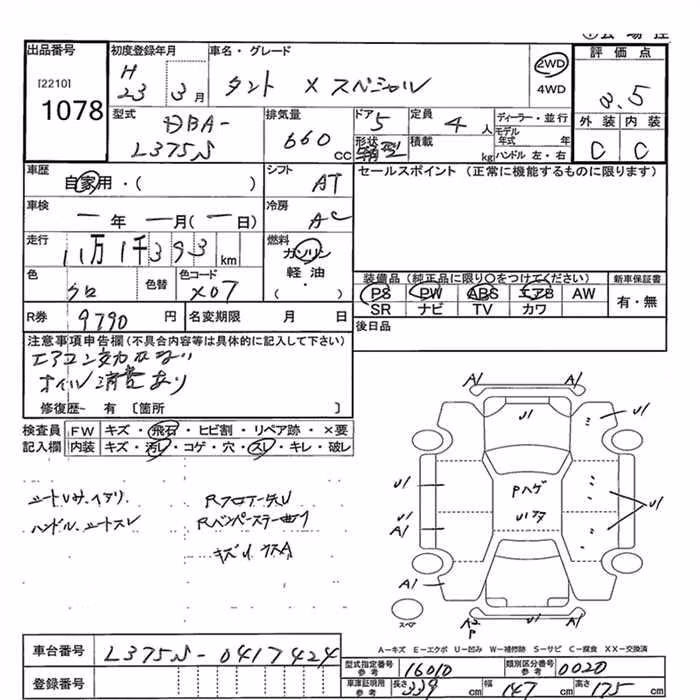 出品番号
[2210]
1078
初度登録年月
H
23 3月
車名・グレード
タント Xスペシャル
2WD
4WD
評価点
3.5
外装 内装
C C
型式
DBA-
L375S
排気量
660
cc
ドア
5
形状
箱型
定員
4 人
積載
kg
ディーラー・並行
モデル
年式 年
ハンドル 左・右
車歴
自家用・( )
シフト
AT
セールスポイント (正常に機能するものに限ります)
車検
ー年 ー月(ー日)
冷房
AC
走行
11万1千393
km
燃料
ガソリン
軽油
・
( )
色
クロ
色替
色コード
X07
装備品 (純正品に限り○をつけてください)
PS PW ABS エアB AW
SR ナビ TV カワ
新車保証書
有・無
R券 9790 円
名変期限 月 日
後日品
注意事項申告欄(不具合内容等は具体的に記入して下さい)
エアコン効かない
オイル消費あり
修復歴- 有 [箇所 ]
検査員 FW キズ・飛石・ヒビ割・リペア跡・×要
記入欄 内装 キズ・汚レ・コゲ・穴・スレ・キレ・破レ
ハンドル、シートスレ
キズ、U、クスA
A1 A1
U1
U1
U1
Pハゲ
U1
U1
A1
A1
A2
P
A1
スペア
A-キズ E-エクボ U-凹み W-補修跡 S-サビ C-腐食 XX-交換済
車台番号 L375S-0417424
登録番号
型式指定番号 16010
類別区分番号 0020
車庫証明用
参考
長さ 339 cm
幅 147 cm
高さ 175 cm